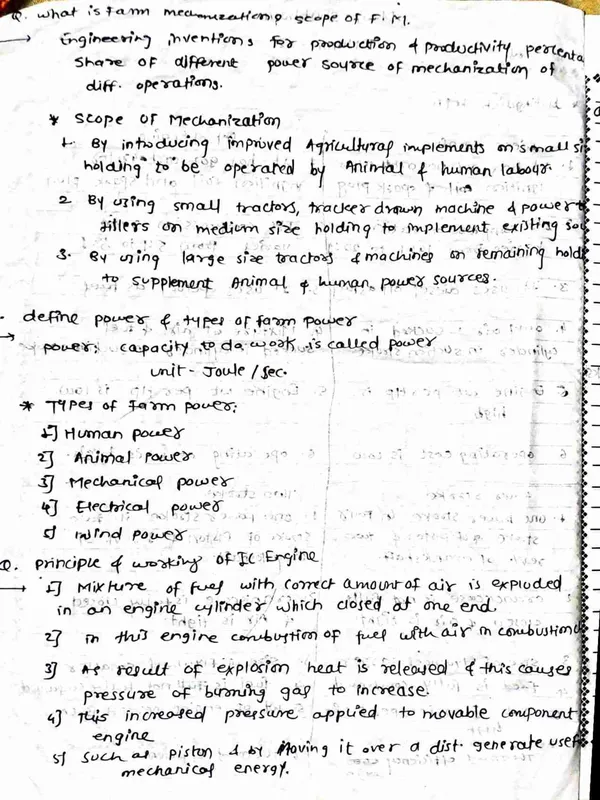 Q. what is farm mechanization & scope of F.M.
→ Engineering inventions for production & productivity percenta
share of different power source of mechanization of
diff. operations.
* Scope of Mechanization
1. By introducing improved Agricultural implements on small si
holding to be operated by Animal & human labour.
2 By using small tractors, tracker drown machine & power t
tillers on medium size holding to implement existing sou
3. By using large size tractors & machines on remaining hold
to supplement Animal & human power sources.
define power & types of farm power
→ power: capacity to do work is called power
unit - Joule / sec.
* Types of farm power:
1] Human power
2] Animal power
3] Mechanical power
4] Electrical power
5] wind power
Q. principle & working of IC Engine
→ 1] Mixture of fuel with correct amount of air is exploded
in an engine cylinder which closed at one end.
2] in this engine combustion of fuel with air in combustion c
3] As result of explosion heat is released & this causes
pressure of burning gas to increase.
4] This increased pressure applied to movable component
engine
5] such as piston & by Moving it over a dist. generate usef
mechanical energy.